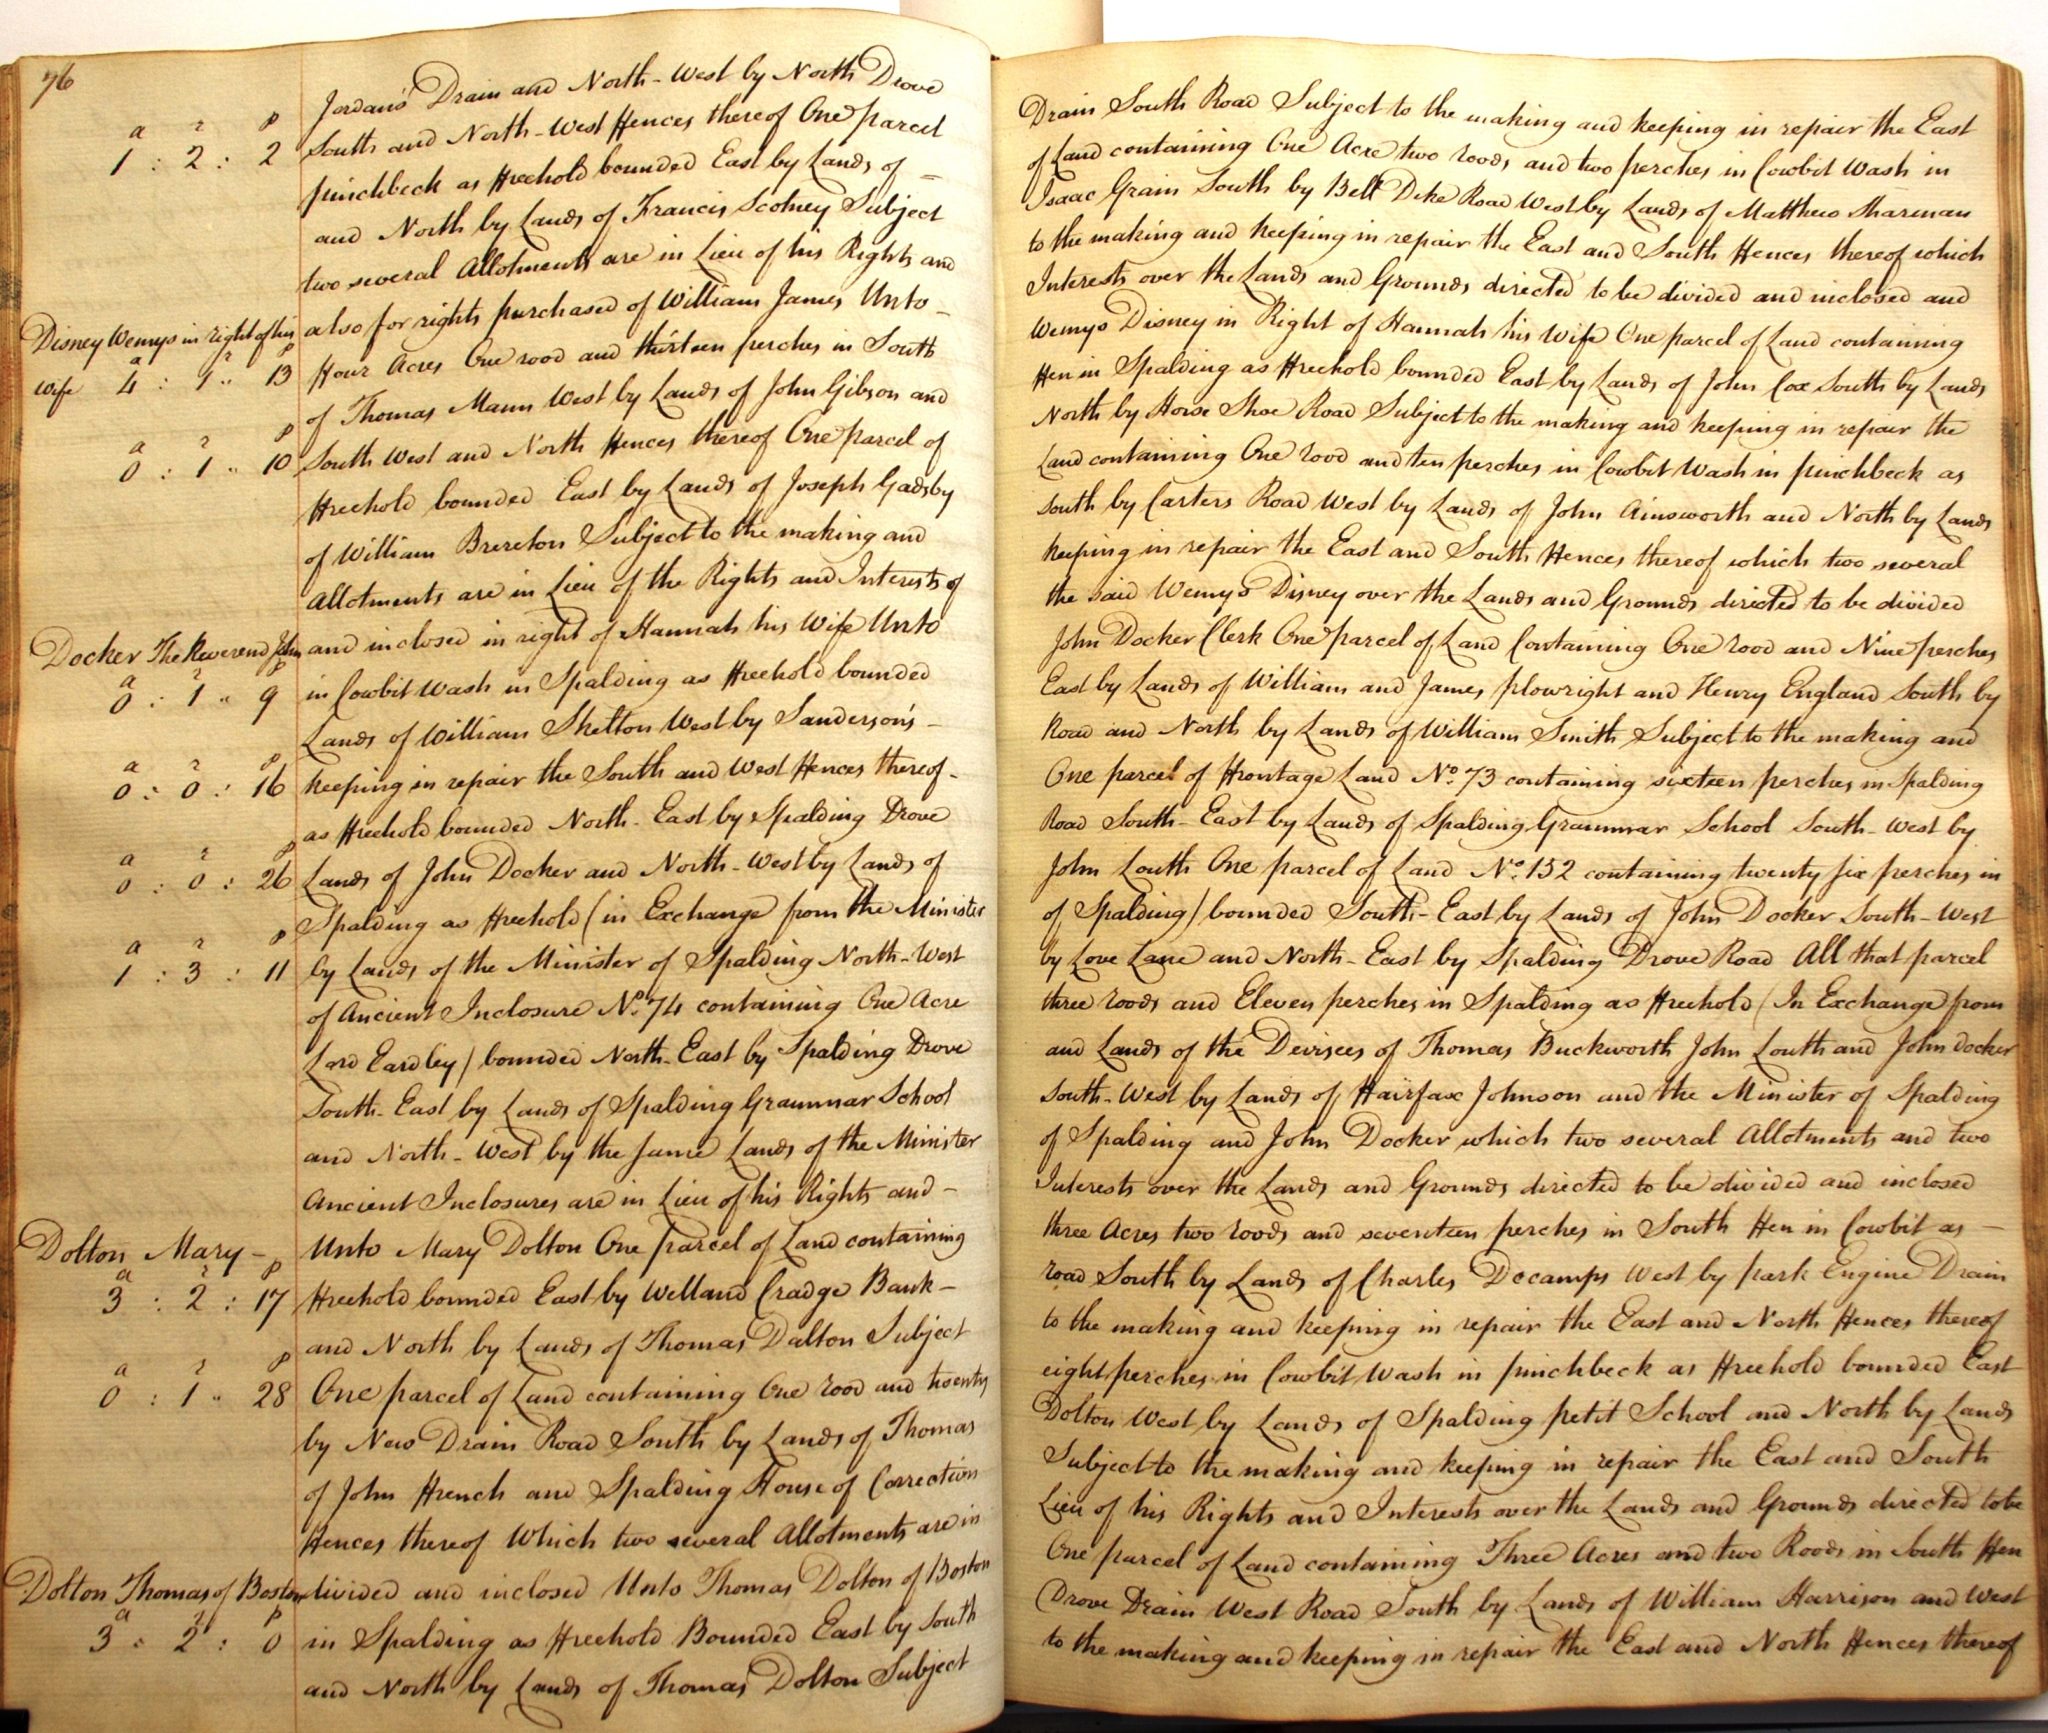 76
Jordan's Drain and North-West by North Drove Drain South Road Subject to the making and keeping in repair the East
a r p
1 : 2 : 2 South and North-West Fences thereof One parcel of Land containing One Acre two roods and two perches in Cowbit Wash in
pinchbeck as Freehold bounded East by Lands of = Isaac Grain South by Bell Dike Road West by Lands of Matthew Sharman
and North by Lands of Francis Scotney Subject to the making and keeping in repair the East and South Fences thereof which
two several Allotments are in Lieu of his Rights and Interests over the Lands and Grounds directed to be divided and inclosed and
Disney Wemys in right of his also for rights purchased of William James Unto - Wemys Disney in Right of Hannah his Wife One parcel of Land containing
a r p
wife 4 : 1 " 13 Four Acres One rood and thirteen perches in South Fen in Spalding as Freehold bounded East by Lands of John Cox South by Lands
of Thomas Mann West by Lands of John Gibson and North by Horse Shoe Road Subject to the making and keeping in repair the
a r p
0 : 1 " 10 South West and North Fences thereof One parcel of Land containing One rood and ten perches in Cowbit Wash in pinchbeck as
Freehold bounded East by Lands of Joseph Gadsby South by Carters Road West by Lands of John Ainsworth and North by Lands
of William Brereton Subject to the making and keeping in repair the East and South Fences thereof which two several
Allotments are in Lieu of the Rights and Interests of the said Wemys Disney over the Lands and Grounds directed to be divided
Docker The Reverend John and inclosed in right of Hannah his Wife Unto John Docker Clerk One parcel of Land Containing One rood and Nine perches
a r p
0 : 1 " 9 in Cowbit Wash in Spalding as Freehold bounded East by Lands of William and James plowright and Henry England South by
Lands of William Skelton West by Sanderson's - Road and North by Lands of William Smith Subject to the making and
a r p
0 : 0 : 16 keeping in repair the South and West Fences thereof - One parcel of Frontage Land No. 73 containing sixteen perches in Spalding
as Freehold bounded North-East by Spalding Drove Road South-East by Lands of Spalding Grammar School South-West by
a r p
0 : 0 : 26 Lands of John Docker and North-West by Lands of John Louth One parcel of Land No. 152 containing twenty six perches in
Spalding as Freehold (in Exchange from the Minister of Spalding) bounded South-East by Lands of John Docker South-West
a r p
1 : 3 : 11 by Lands of the Minister of Spalding North-West by Love Lane and North-East by Spalding Drove Road All that parcel
of Ancient Inclosure No. 74 containing One Acre three roods and Eleven perches in Spalding as Freehold (In Exchange from
Lord Eardley) bounded North-East by Spalding Drove and Lands of the Devisees of Thomas Buckworth John Louth and John Docker
South-East by Lands of Spalding Grammar School South-West by Lands of Fairfax Johnson and the Minister of Spalding
and North-West by the same Lands of the Minister of Spalding and John Docker which two several Allotments and two
Ancient Inclosures are in Lieu of his Rights and - Interests over the Lands and Grounds directed to be divided and inclosed
Dolton Mary - Unto Mary Dolton One parcel of Land containing three Acres two roods and seventeen perches in South Fen in Cowbit as -
a r p
3 : 2 : 17 Freehold bounded East by Welland Cradge Bank - road South by Lands of Charles Decamps West by park Engine Drain
and North by Lands of Thomas Dalton Subject to the making and keeping in repair the East and North Fences thereof
a r p
0 : 1 " 28 One parcel of Land containing One rood and twenty eight perches in Cowbit Wash in pinchbeck as Freehold bounded East
by New Drain Road South by Lands of Thomas Dolton West by Lands of Spalding petit School and North by Lands
of John French and Spalding House of Correction Subject to the making and keeping in repair the East and South
Fences thereof Which two several Allotments are in Lieu of his Rights and Interests over the Lands and Grounds directed to be
Dolton Thomas of Boston divided and inclosed Unto Thomas Dolton of Boston One parcel of Land containing Three Acres and two Roods in South Fen
a r p
3 : 2 : 0 in Spalding as Freehold Bounded East by South Drove Drain West Road South by Lands of William Harrison and West
and North by Lands of Thomas Dolton Subject to the making and keeping in repair the East and North Fences thereof